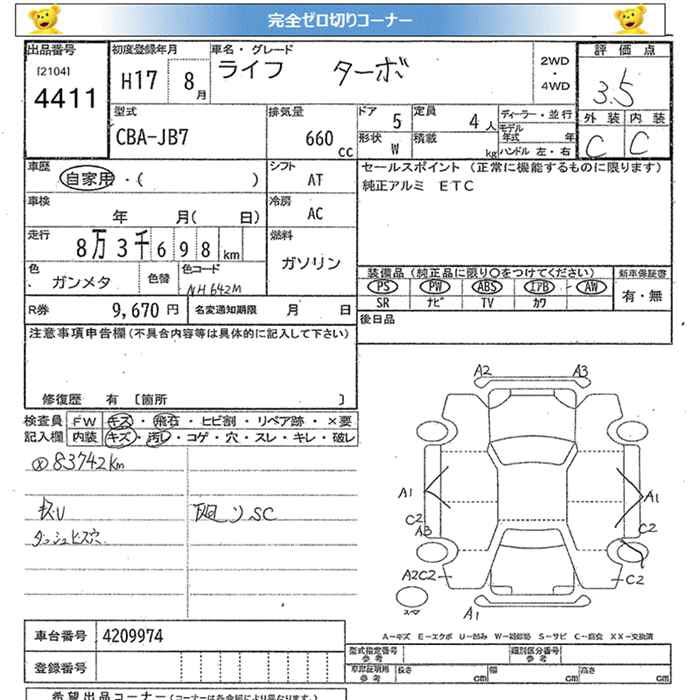 完全ゼロ切りコーナー
出品番号 初度登録年月 車名・グレード 評価点
[2104] 4411
H17 8月 ライフ ターボ 2WD・4WD 3.5
型式 排気量 ドア 定員 ディーラー・並行 外装 内装
CBA-JB7 660cc 5 4人 モデル年式 年 C C
形状 W 積載 kg ハンドル 左・右
車歴 シフト セールスポイント (正常に機能するものに限ります)
自家用・( ) AT 純正アルミ ETC
車検 冷房
年 月( 日) AC
走行 燃料
8万3千698km ガソリン
色 色替 色コード 装備品 (純正品に限り○をつけてください) 新車保証書
ガンメタ NH642M PS PW ABS エアB AW 有・無
SR ナビ TV カワ
R券 9,670円 名変通知期限 月 日 後日品
注意事項申告欄(不具合内容等は具体的に記入して下さい)
修復歴 有 [箇所 ]
検査員 FW キズ・飛石・ヒビ割・リペア跡・×要
記入欄 内装 キズ・汚レ・コゲ・穴・スレ・キレ・破レ
83742km
下廻りSC
ダッシュビス穴
A2 A3
A1 A1
C2 C2
A3
A2C2 C2
スペア A1
A−キズ E−エクボ U−凹み W−補修跡 S−サビ C−腐食 XX−交換済
車台番号 4209974
型式指定番号 参考 類別区分番号 参考
登録番号 車庫証明用 参考 長さ cm 幅 cm 高さ cm
希望出品コーナー(コーナーは各会場により異なります。)